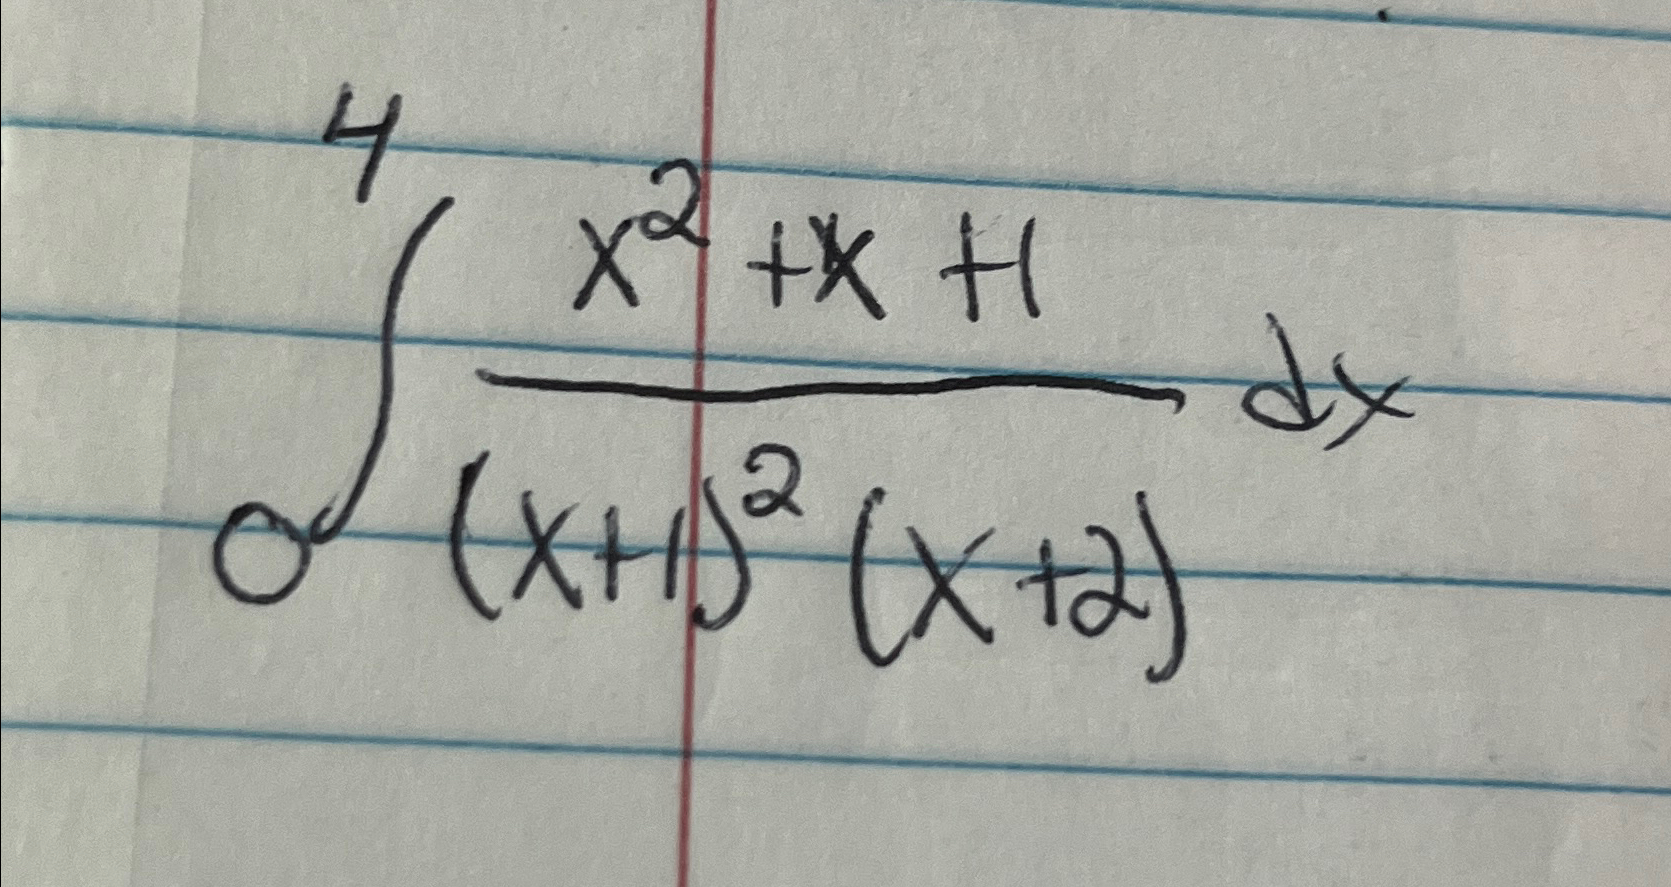 ∫₀⁴ (x² + x + 1) / ((x+1)² (x+2)) dx